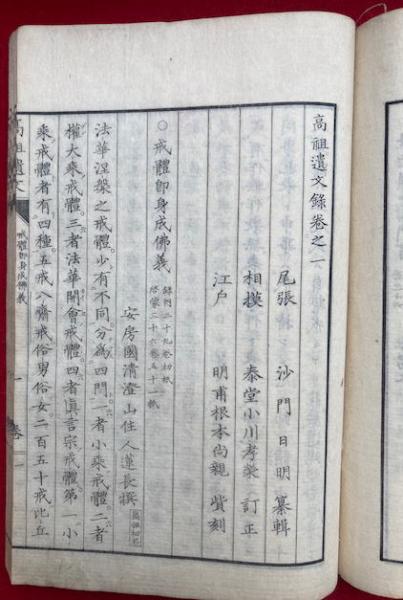 高祖遺文錄卷之一
尾張 沙門日明 纂輯
相摸 泰堂小川孝榮 訂正
江戶 明甫根本尚親 貲刻
○戒體即身成佛義
安房國清澄山住人蓮長撰
法華涅槃之戒體少有不同分為四門一者小乘戒體二者
權大乘戒體三者法華開會戒體四者眞言宗戒體第一小
乘戒體者有四種五戒八齋戒俗男俗女二百五十戒比丘
高祖遺文
戒體即身成佛義
一